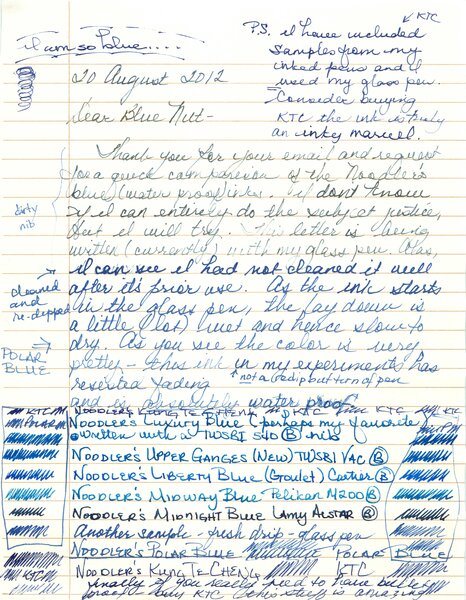 I am so blue.....
← KTC
P.S. I have included
samples from my
inked pens and I
used my glass pen.
Consider buying
KTC the ink is truly
an inky marvel.
20 August 2012
Dear Blue Nut-
Thank you for your email and request
for a quick comparison of the Noodler's
blue (water proof) inks. I don't know
if I can entirely do the subject justice,
but I will try. This letter is being
written (currently) with my glass pen. Alas,
dirty
nib
I can see I had not cleaned it well
after its prior use. As the ink starts
in the glass pen, the lay down is
a little (lot) wet and hence slow to
dry. As you see the color is very
pretty - this ink in my experiments has
resisted fading ↑ not a redip but turn of pen
and is absolutely water proof
cleaned
and
re-dipped
→
POLAR
BLUE
KTC Noodler's Kung Te Cheng KTC KTC KTC
Noodler's Luxury Blue (perhaps my favorite
written with a TWSBI 540 (B) nib
Noodler's Upper Ganges (New) TWSBI Vac (B)
Noodler's Liberty Blue (Goulet) Cartier (B)
Noodler's Midway Blue Pelikan M200 (B)
Noodler's Midnight Blue Lamy Alstar (B)
Another sample - fresh drip - glass pen
Noodler's Polar Blue Polar Blue
KTC Noodler's Kung Te Cheng KTC
finally if you really need to have bullet
proof buy KTC this stuff is amazing